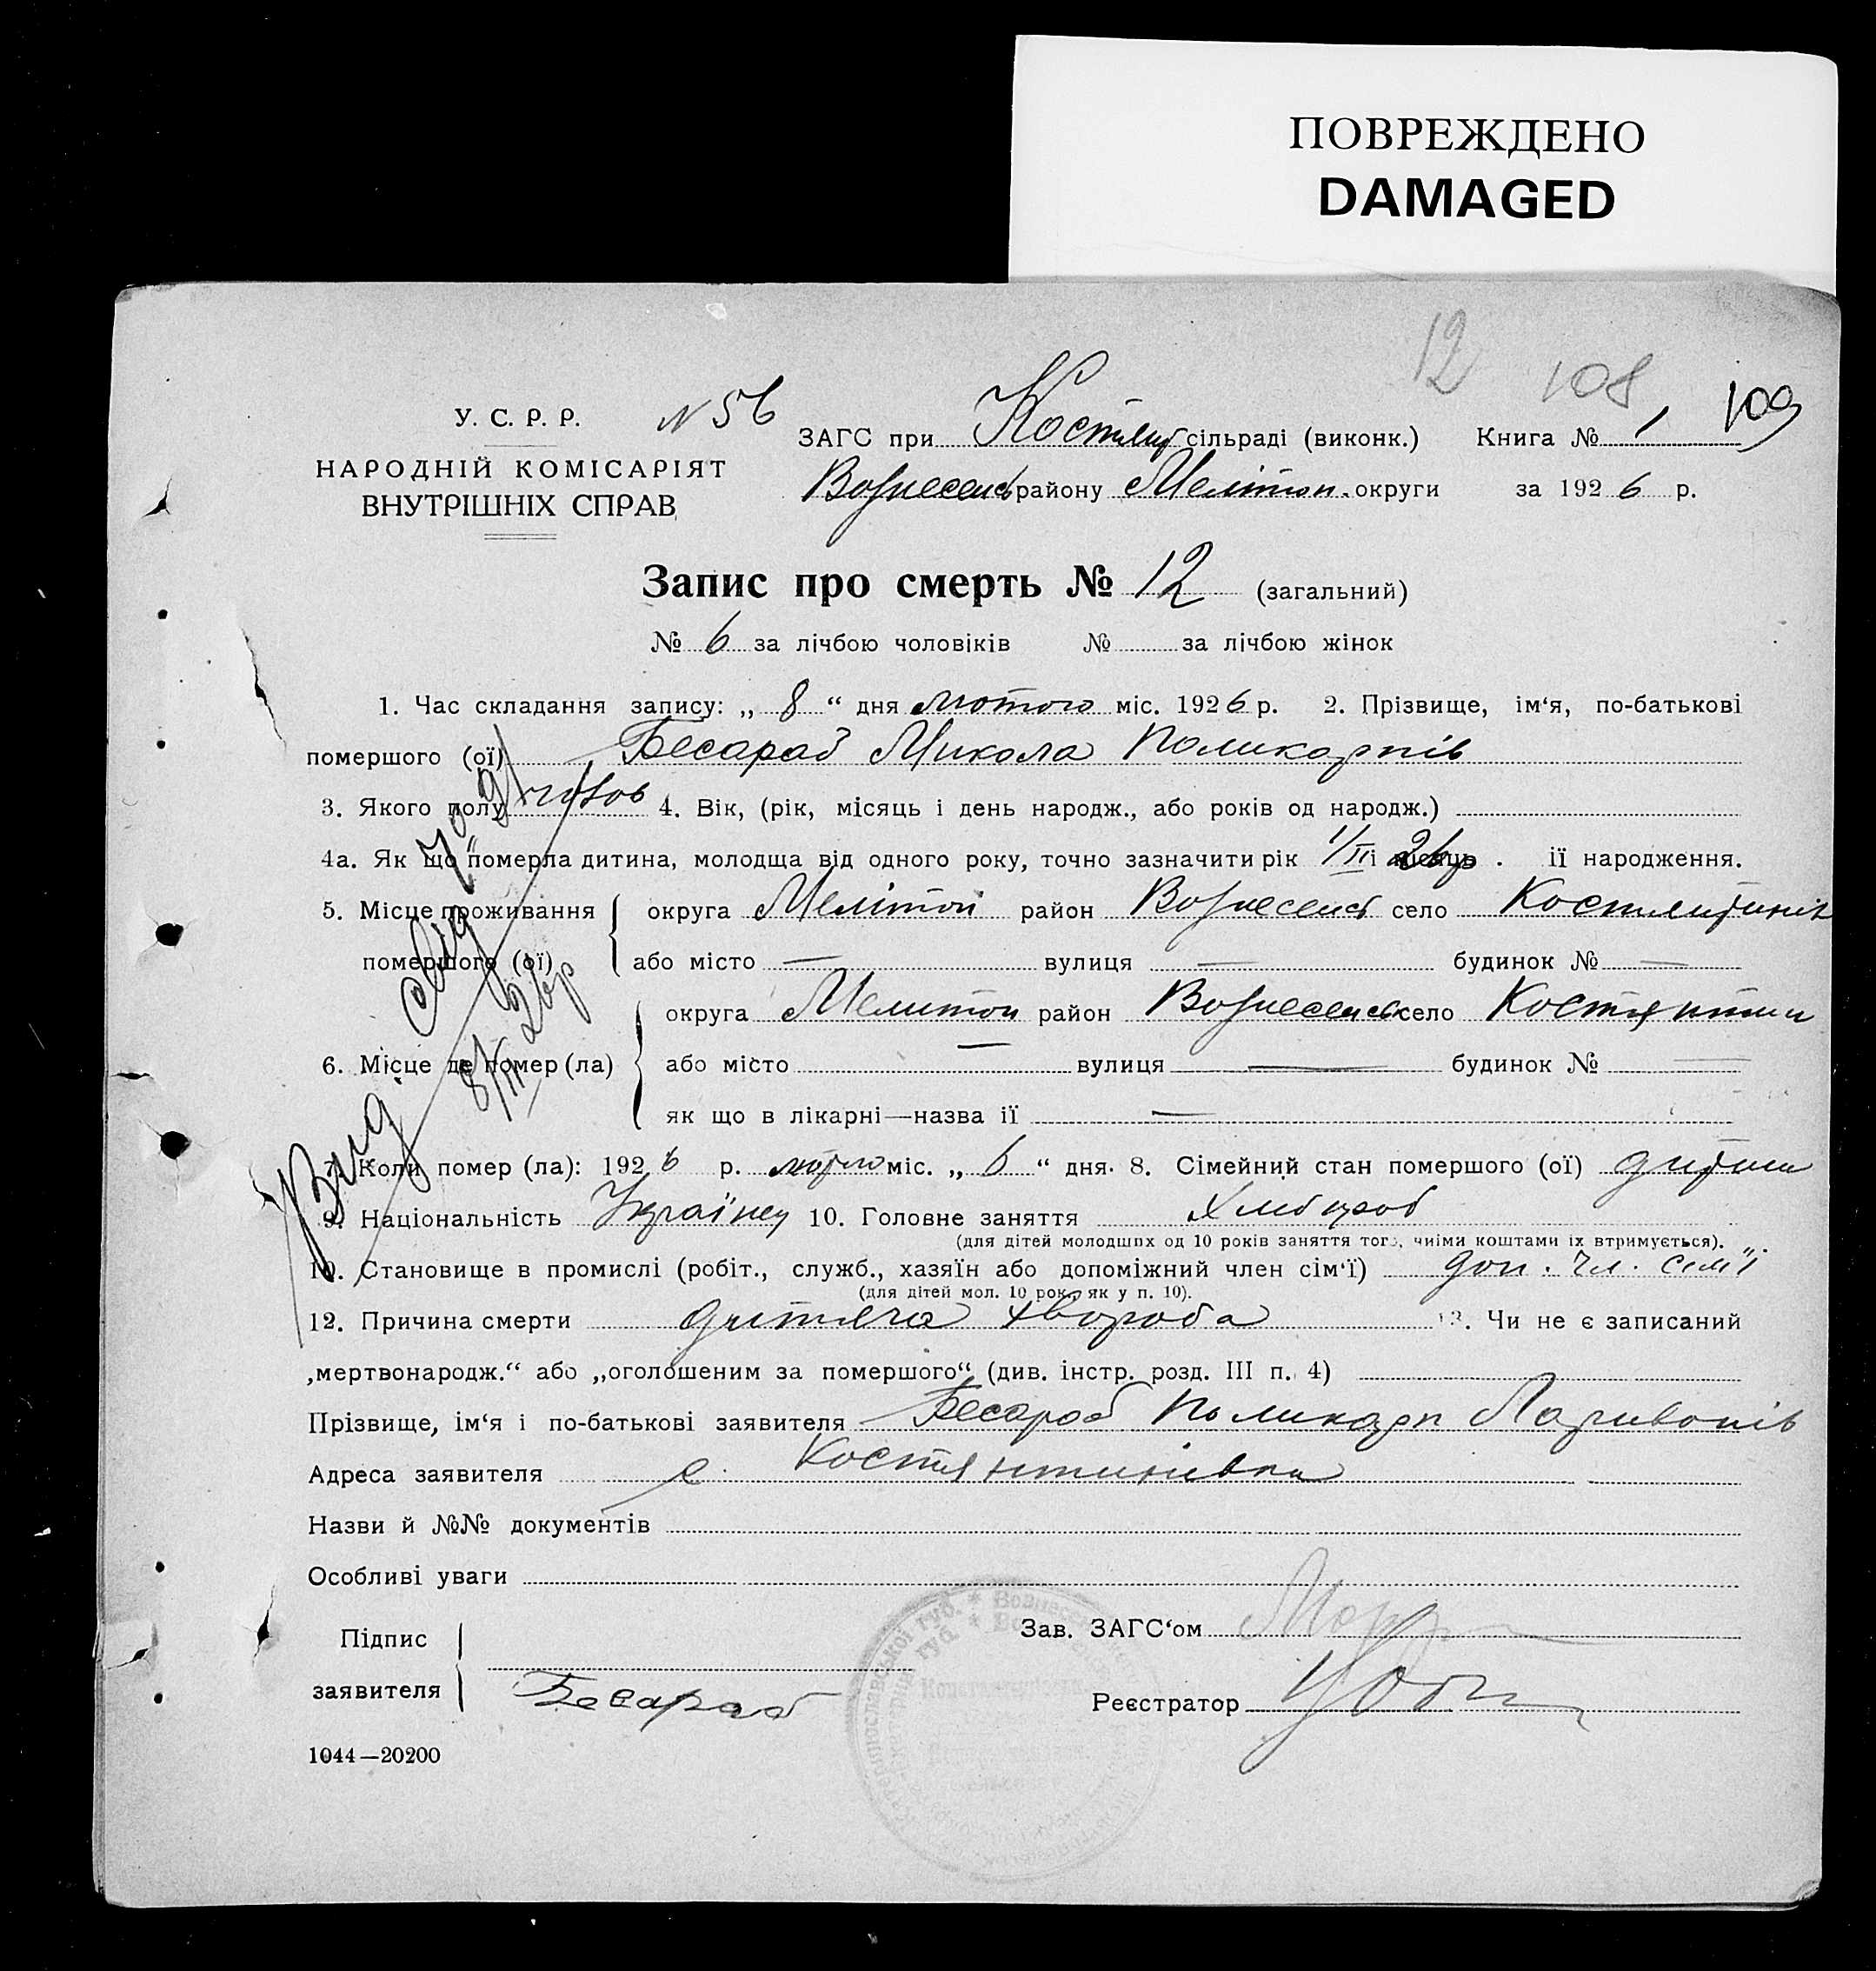 ПОВРЕЖДЕНО
DAMAGED
12 108 109
У. С. Р. Р. N 56 ЗАГС при Костянт сільраді (виконк.) Книга № 1
НАРОДНІЙ КОМІСАРІЯТ
ВНУТРІШНІХ СПРАВ
Вознесенсь району Мелітоп. округи за 1926 р.
Запис про смерть № 12 (загальний)
№ 6 за лічбою чоловіків № за лічбою жінок
1. Час складання запису: „ 8 “ дня лютого міс. 1926 р. 2. Прізвище, ім‘я, по-батькові
помершого (ої) Бесараб Микола Поликарпів
3. Якого полу чолов 4. Вік, (рік, місяць і день народж., або років од народж.)
4а. Як що померла дитина, молодща від одного року, точно зазначити рік 1/II і місяць 26р . її народження.
5. Місце проживання помершого (ої) округа Мелітоп район Вознесенсь село Костянтинів
або місто — вулиця — будинок № —
6. Місце де помер (ла) округа Мелитоп район Вознесенськ село Костянтин
або місто — вулиця — будинок № —
як що в лікарні—назва її —
7. Коли помер (ла): 1926 р. лютого міс. „ 6 “ дня. 8. Сімейний стан помершого (ої) дитина
9. Національність Українец 10. Головне заняття Хлібороб
(для дітей молодших од 10 років заняття того, чиїми коштами їх втримується).
10. Становище в промислі (робіт., служб., хазяїн або допоміжний член сім‘ї) доп. чл. сем'ї
(для дітей мол. 10 рок., як у п. 10).
12. Причина смерти дитяча хвороба 13. Чи не є записаний
„мертвонародж.“ або „оголошеним за помершого“ (див. інстр. розд. III п. 4)
Прізвище, ім‘я і по-батькові заявителя Бесараб Поликарп Ларивонів
Адреса заявителя с. Костянтинівка
Назви й №№ документів
Особливі уваги
Підпис
заявителя Бесараб
Зав. ЗАГС‘ом
Реєстратор
1044—20200
8/II 26р